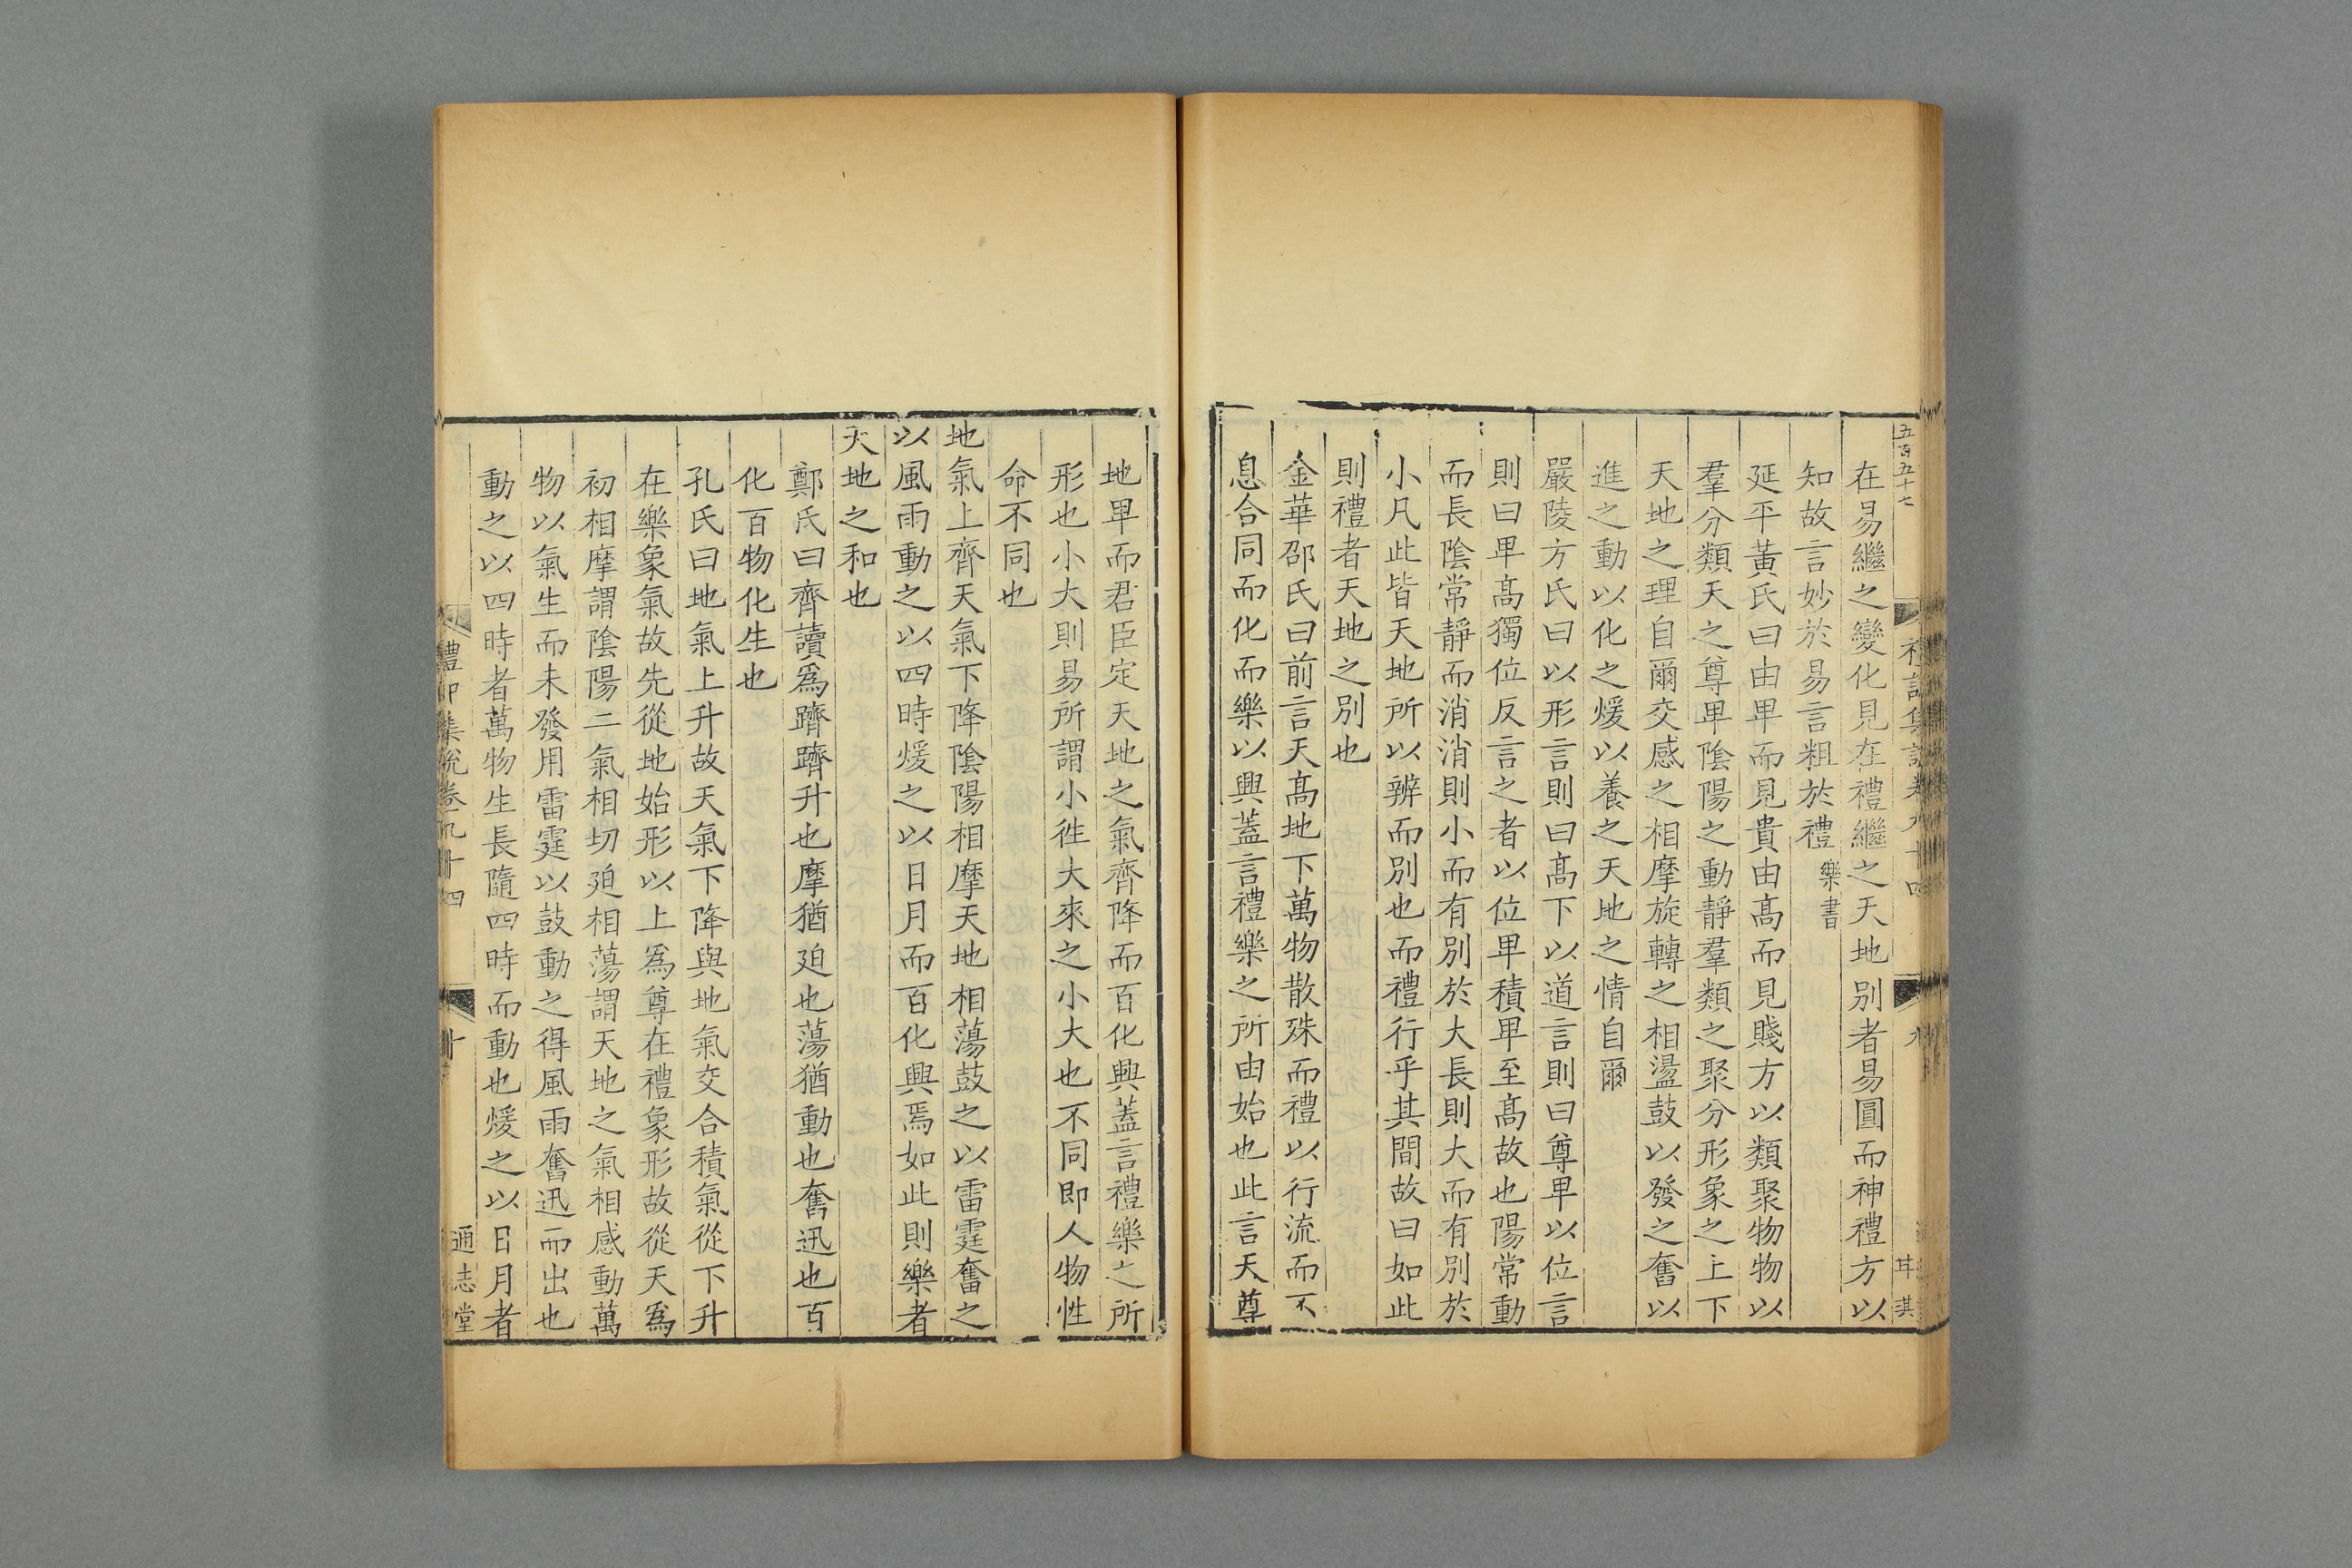 五百五十七
禮記集說卷九十四
九
在易繼之變化見在禮繼之天地别者易圓而神禮方以
知故言妙於易言粗於禮樂書
延平黃氏曰由卑而見貴由髙而見賤方以類聚物物以
羣分類天之尊卑隂陽之動靜羣類之聚分形象之上下
天地之理自爾交感之相摩旋轉之相盪鼓以發之奮以
進之動以化之煖以養之天地之情自爾
嚴陵方氏曰以形言則曰髙下以道言則曰尊卑以位言
則曰卑髙獨位反言之者以位卑積卑至髙故也陽常動
而長隂常靜而消消則小而有别於大長則大而有别於
小凡此皆天地所以辨而别也而禮行乎其間故曰如此
則禮者天地之别也
金華邵氏曰前言天髙地下萬物散殊而禮以行流而不
息合同而化而樂以興蓋言禮樂之所由始也此言天尊
地卑而君臣定天地之氣齊降而百化興蓋言禮樂之所
形也小大則易所謂小徃大來之小大也不同即人物性
命不同也
地氣上齊天氣下降隂陽相摩天地相蕩鼓之以雷霆奮之
以風雨動之以四時煖之以日月而百化興焉如此則樂者
天地之和也
鄭氏曰齊讀爲躋躋升也摩猶廹也蕩猶動也奮迅也百
化百物化生也
孔氏曰地氣上升故天氣下降與地氣交合積氣從下升
在樂象氣故先從地始形以上爲尊在禮象形故從天爲
初相摩謂隂陽二氣相切廹相蕩謂天地之氣相感動萬
物以氣生而未發用雷霆以鼓動之得風雨奮迅而出也
動之以四時者萬物生長隨四時而動也煖之以日月者
禮記集說卷九十四
十
通志堂